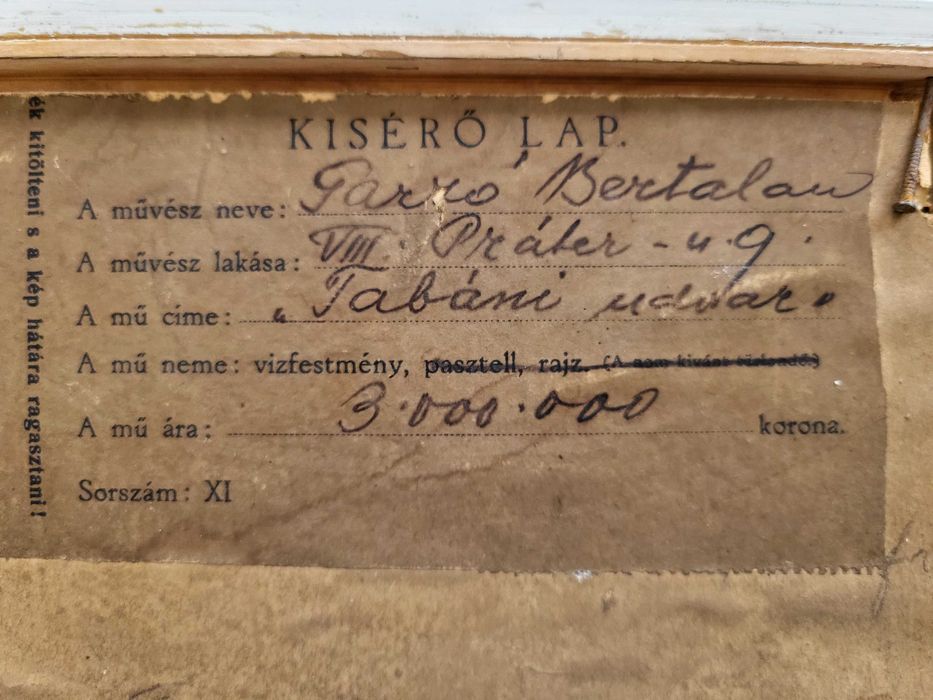 KISÉRŐ LAP.
A művész neve: Bertalan
A művész lakása: VIII. Práter-u 9.
A mű címe: „Tabáni udvar"
A mű neme: vizfestmény, pasztell, rajz. (A nem kivánt törlendő.)
A mű ára: 3.000.000 korona.
Sorszám: XI
ék kitölteni s a kép hátára ragasztani!